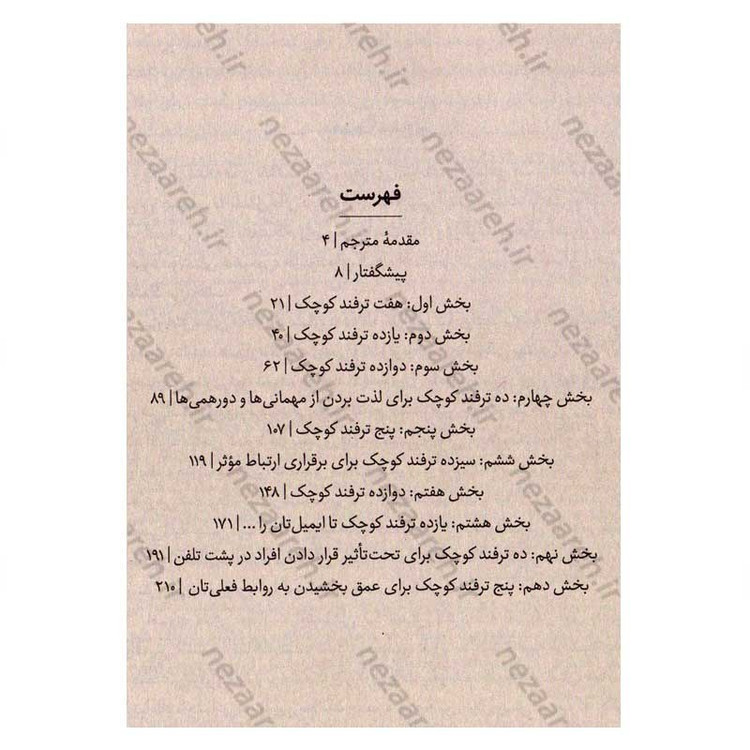 فهرست
مقدمهٔ مترجم | ۴
پیشگفتار | ۸
بخش اول: هفت ترفند کوچک | ۲۱
بخش دوم: یازده ترفند کوچک | ۴۰
بخش سوم: دوازده ترفند کوچک | ۶۲
بخش چهارم: ده ترفند کوچک برای لذت بردن از مهمانی‌ها و دورهمی‌ها | ۸۹
بخش پنجم: پنج ترفند کوچک | ۱۰۷
بخش ششم: سیزده ترفند کوچک برای برقراری ارتباط مؤثر | ۱۱۹
بخش هفتم: دوازده ترفند کوچک | ۱۴۸
بخش هشتم: یازده ترفند کوچک تا ایمیل‌تان را ... | ۱۷۱
بخش نهم: ده ترفند کوچک برای تحت‌تأثیر قرار دادن افراد در پشت تلفن | ۱۹۱
بخش دهم: پنج ترفند کوچک برای عمق بخشیدن به روابط فعلی‌تان | ۲۱۰
nezaareh.ir